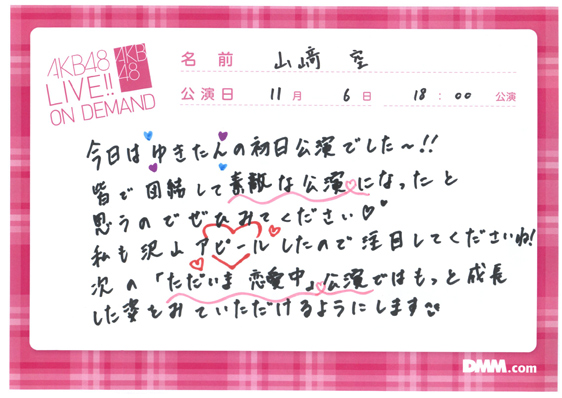 AKB48
LIVE!!
ON DEMAND
AKB
48
名前 山﨑 空
公演日 11月 6日 18:00 公演
今日はゆきたんの初日公演でした〜!!
皆で団結して素敵な公演になったと
思うのでぜひみてください♡♡
私も沢山アピールしたので注目してくださいね!
次の「ただいま恋愛中」公演ではもっと成長
した姿をみていただけるようにします
DMM.com